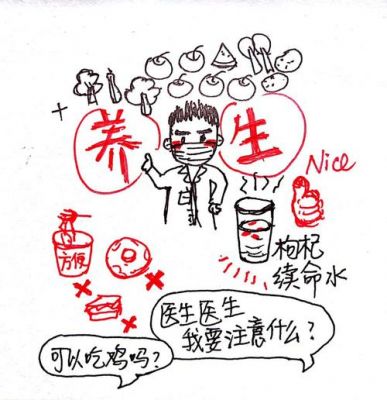 养生
Nice
方便
枸杞
续命水
医生医生
我要注意什么?
可以吃鸡吗?